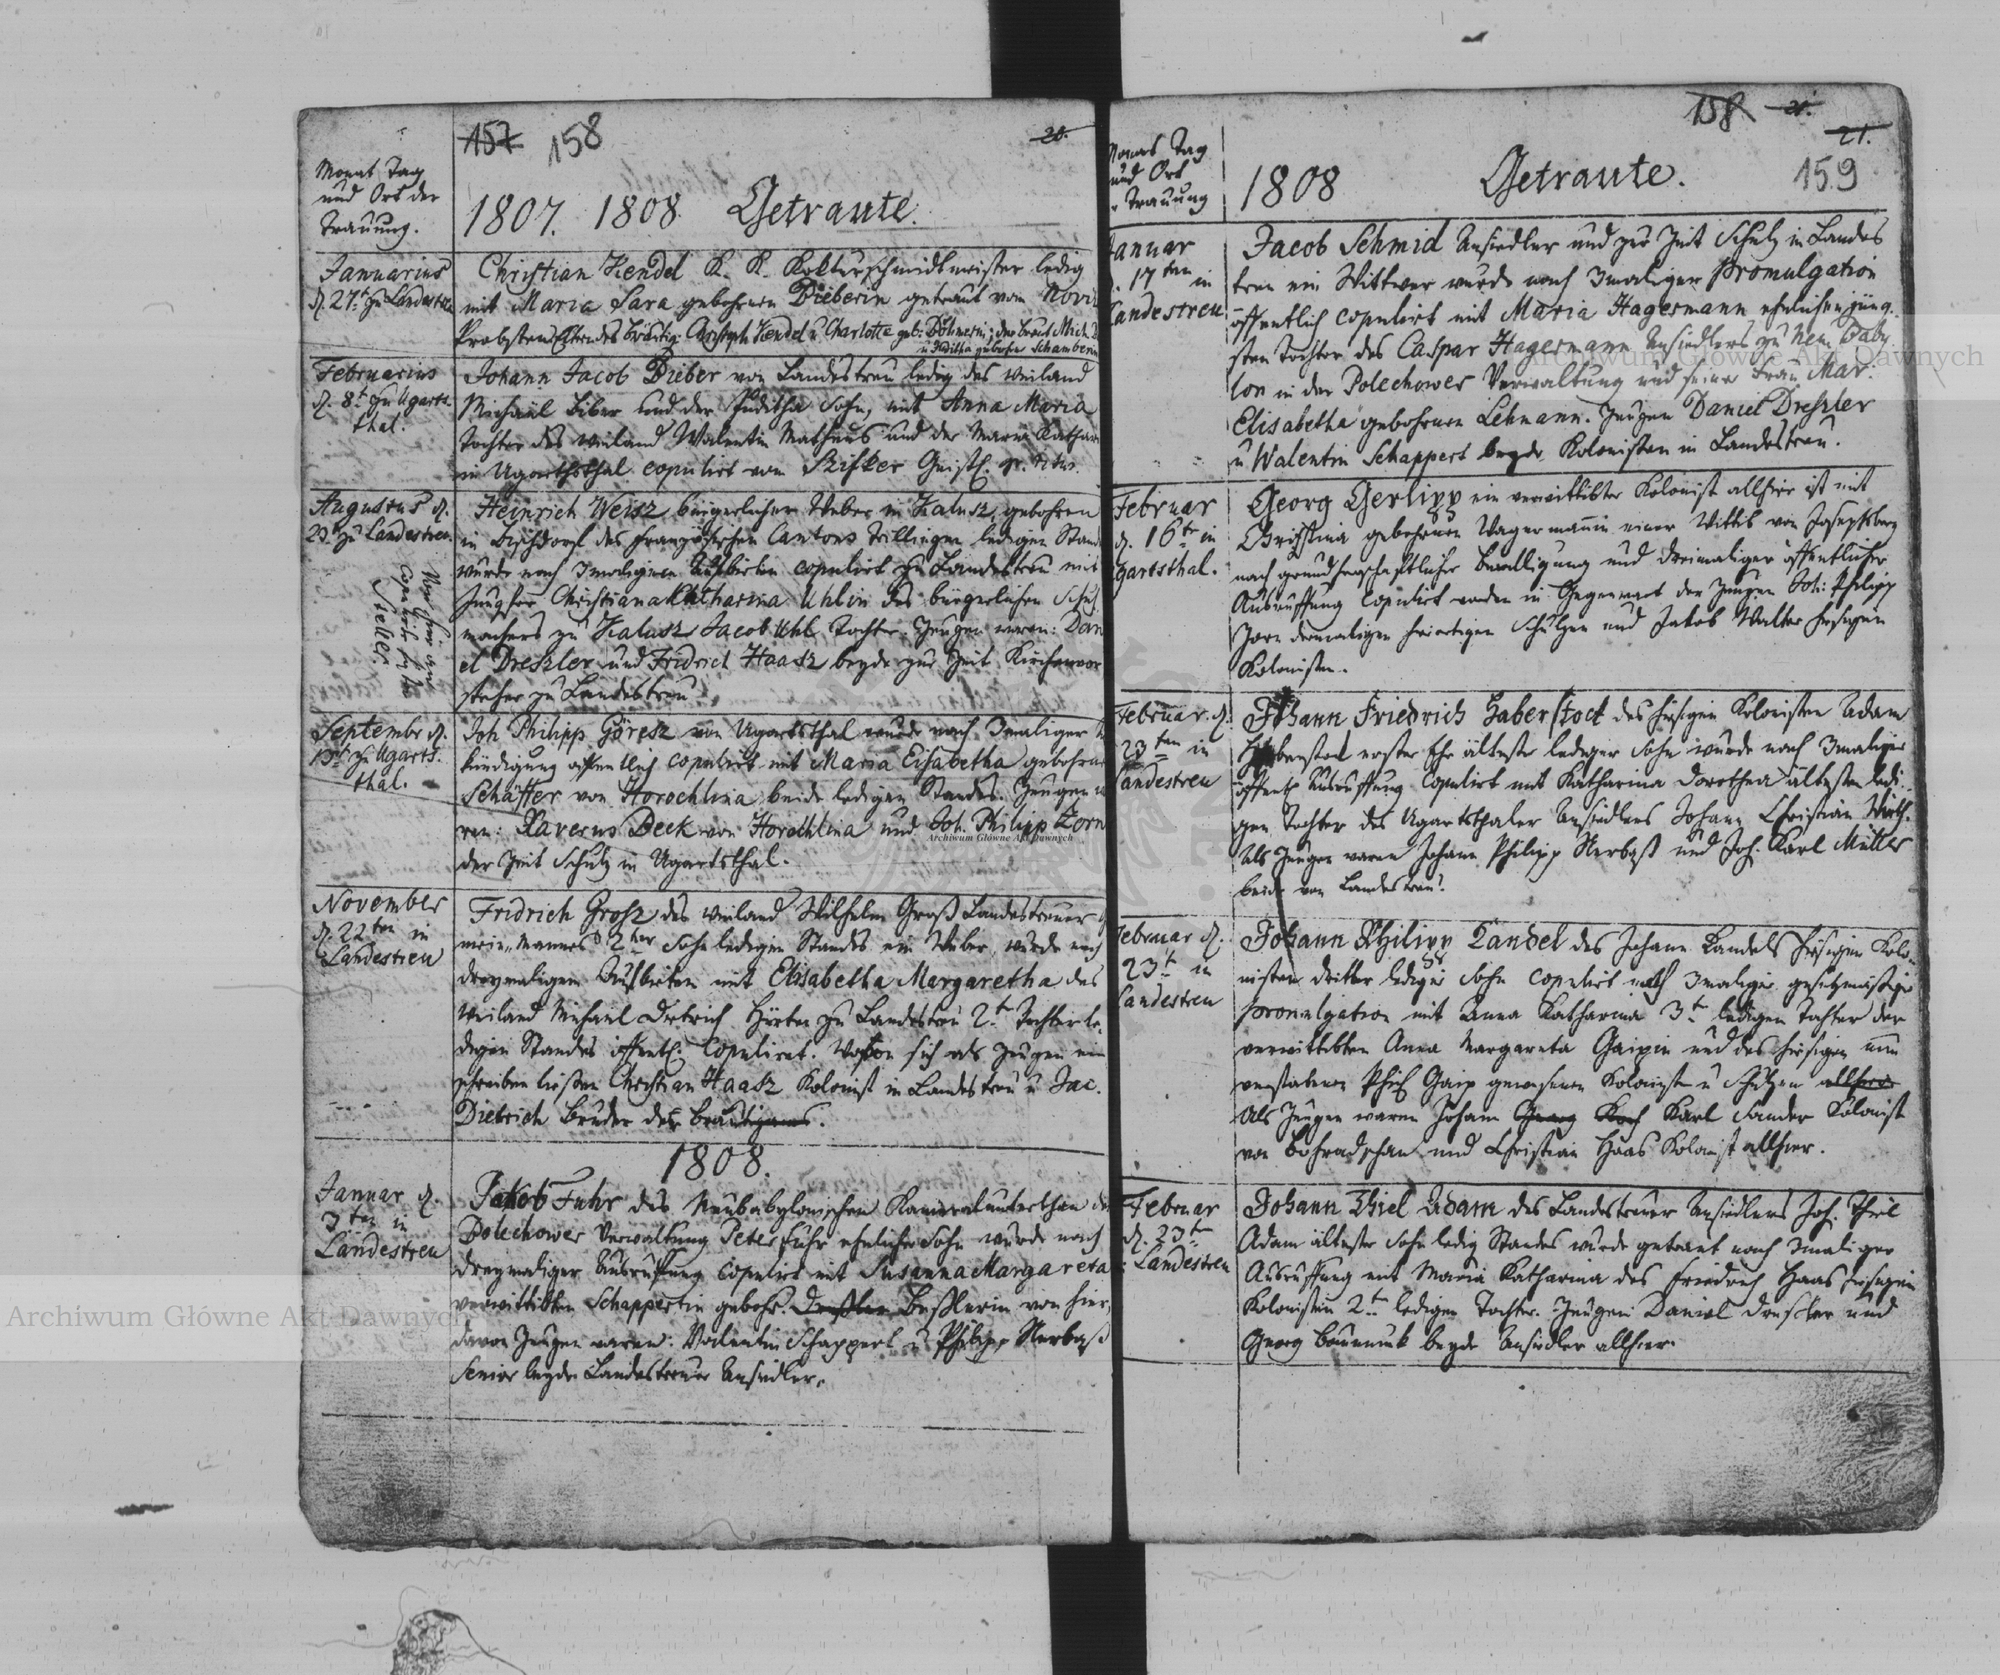 157 158
20.
Monat Tag
und Ort der
Trauung.
1807. 1808. Getraute.
Januarius
d. 27t. zu Landestreu
Christian Kendel K. K. ledig
mit Maria Sara gebohrnen Bieberin getraut von
Christoph Kendel u Charlotte geb:
u Juditha gebohrn Schamberin
Februarius
d. 8t. zu Ugarts-
thal.
Johann Jacob Bieber von Landestreu ledig des weiland
Michael Biber und der Juditha Sohn, mit Anna Maria
Tochter des weiland Walentin Matheus und der Maria Kathar
in Ugartsthal copulirt von
Augustus d.
23t zu Landestreu
Von hier an
Copulirte
Heinrich Weisz bürgerlicher Weber in Kalusz, gebohren
in Bischdorf des französischen Cantons ledigen Stand
wurde nach 3maligen Aufbieten copulirt zu Landestreu mit
Jungfer Christiana Katharina Uhlin des bürgerlichen Schu
machers zu Kalusz Jacob Uhl Tochter. Zeugen waren: Dan
el Dreszler und Fridrich Haasz beyde zur Zeit Kirchenvor
steher zu Landestreu
September d.
13t zu Ugarts-
thal.
Joh Philipp Göresz von Ugartsthal wurde nach 3maliger
kündigung öffentlich copulirt mit Maria Elisabetha gebohrne
Schäffer von Horochlina beide ledigen Standes. Zeugen w
ren: Xaverus Beck von Horochlina und Joh. Philipp Zorn
der Zeit Schulz in Ugartsthal.
November
d. 22ten in
Landestreu
Fridrich Grosz des weiland Wilhelm Groß Landestreuer
mein-Mannes 2ter Sohn ledigen Standes ein Weber, wurde nach
dreymaligem Aufbieten mit Elisabetha Margaretha des
weiland Michael Dietrich zu Landestreu 2te Tochter le-
digen Standes öffentl. Copulirt. sich als Zeugen ein
schreiben ließen Christian Haasz Kolonist in Landestreu u Jac.
Dietrich Bruder der
1808.
Januar d.
3ten in
Landestreu
Jakob Fuhr des Neubabylonischen Kameralunterthan
Dolechower Verwaltung Peter Fuhr ehelicher Sohn wurde nach
dreymaliger Ausrufung copulirt mit Susanna Margareta
verwittibten Schappertin gebohr. von hier,
davon Zeugen waren: Valentin Schappert u Philipp Nerbaß
Senior beyde Landestreuer Ansiedler.
158 21.
21.
159
Monat Tag
und Ort
r Trauung
1808 Getraute.
Januar
. 17ten in
Landestreu
Jacob Schmid Ansiedler und zur Zeit Schulz in Landes
treu ein Wittwer wurde nach 3maliger Promulgation
öffentlich copulirt mit Maria Hagermann ehelichen jüng-
sten Tochter des Caspar Hagermann Ansiedlers zu Neu Baby
lon in der Polechower Verwaltung und seiner Frau Mar:
Elisabetha gebohrnen Lehmann. Zeugen Daniel Dreszler
u Walentin Schappert beyde Kolonisten in Landestreu.
Februar
d. 16t in
gartsthal.
Georg Gerlipp ein verwittibter Kolonist allhier ist mit
Christina gebohrnen Wagermannin einer Wittib von Josephsberg
nach grundherrschaftlicher Bewilligung und dreimaliger öffentlicher
Ausruffung Copulirt worden in Gegenwart der Zeugen Joh: Philipp
Zorn dermaligen hierortigen Schulzen und Jakob Walter hiesigen
Kolonisten.
Februar. d.
23ten in
Landestreu
Johann Friedrich Haberstock des hiesigen Kolonisten Adam
Haberstock erster Ehe ältester lediger Sohn wurde nach 3maliger
öffentl Ausruffung Copulirt mit Katharina Dorothea ältesten ledi-
gen Tochter des Ugartsthaler Ansiedlers Johann Christian
Als Zeugen waren Johann Philipp Nerbaß und Joh. Karl Müller
beide von Landestreu.
Februar d.
23t in
Landestreu
Johann Philipp Landel des Johann Landels hiesigen Kolo-
nisten dritter lediger Sohn Copulirt nach 3maliger gesetzmäßiger
Promulgation mit Anna Katharina 3te ledigen Tochter der
verwittibten Anna Margareta Gaipin und des hiesigen nun
verstorbenen Phil Gaip gewesenen Kolonisten u Schulzen allhier
Als Zeugen waren Johann Georg Koch Karl Sander Kolonist
von und Christian Haas Kolonist allhier.
Februar
d. 23te
Landestreu
Johann Thiel Adam des Landestreuer Ansiedlers Joh. Thiel
Adam ältester Sohn ledig Standes wurde getraut nach 3maliger
Ausruffung mit Maria Katharina des Friedrich Haas hiesigen
Kolonisten 2te ledigen Tochter. Zeugen Daniel Dresler und
Georg beyde Ansiedler allhier.
Archiwum Główne Akt Dawnych
Archiwum Główne Akt Dawnych
Archiwum Główne Akt Dawnych